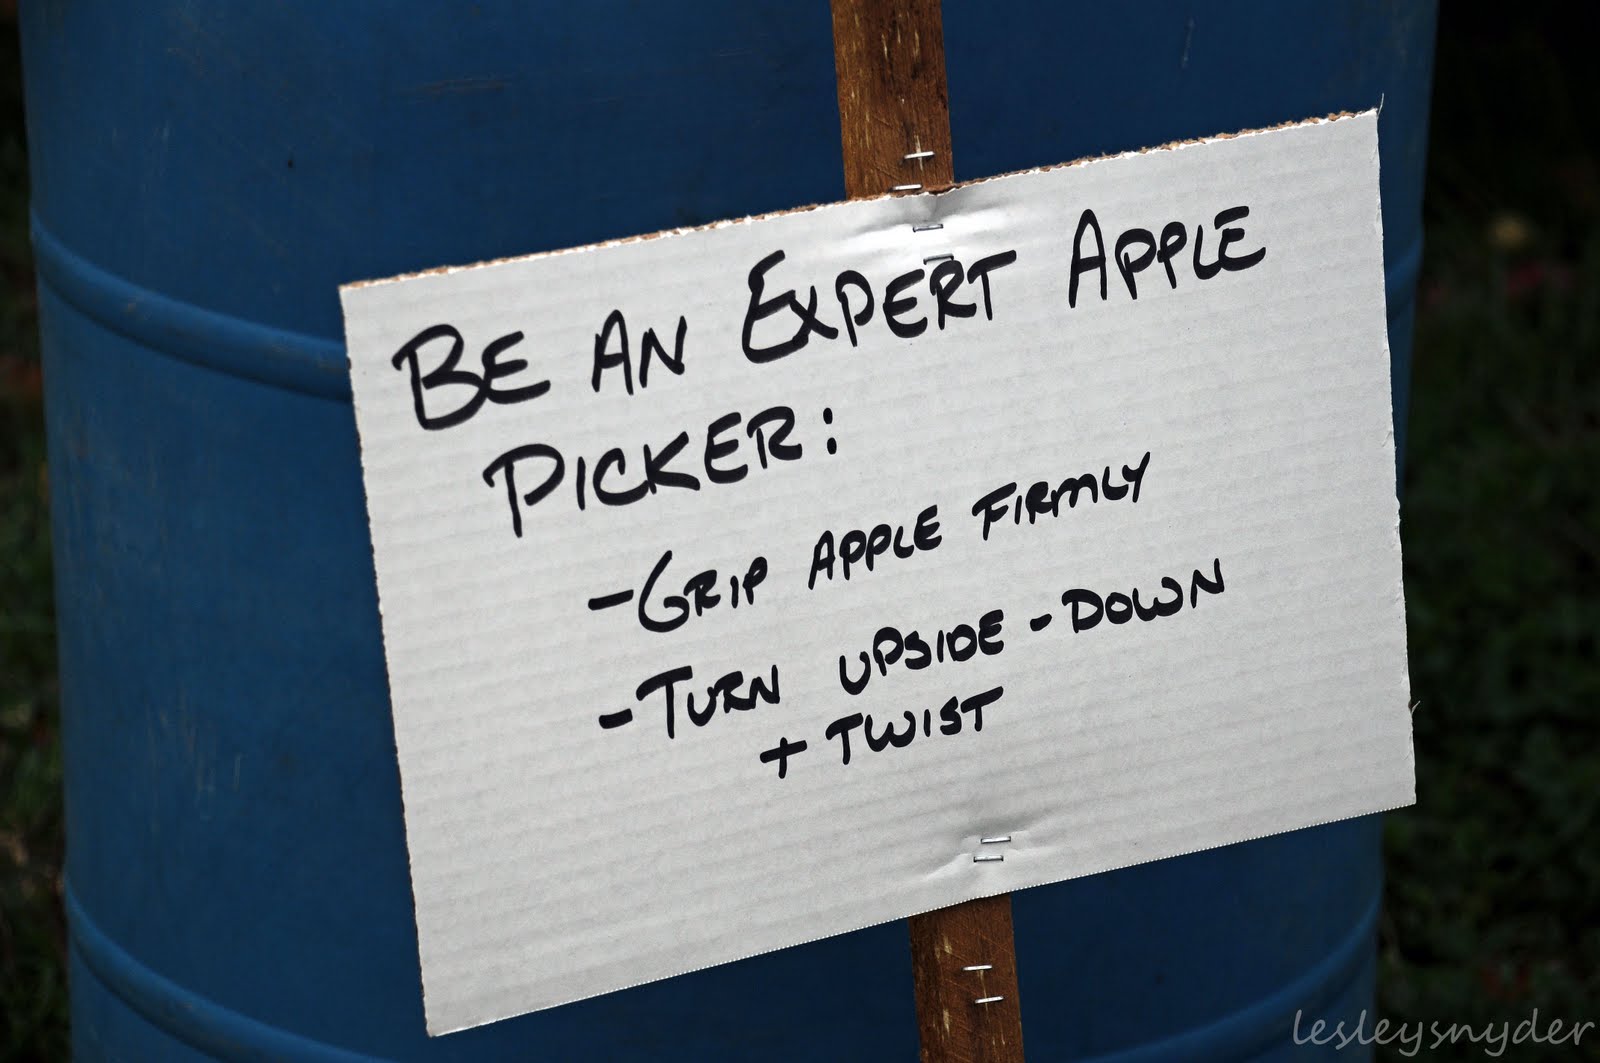 BE AN EXPERT APPLE
PICKER:
-GRIP APPLE FIRMLY
-TURN UPSIDE-DOWN
+ TWIST
lesleysnyder